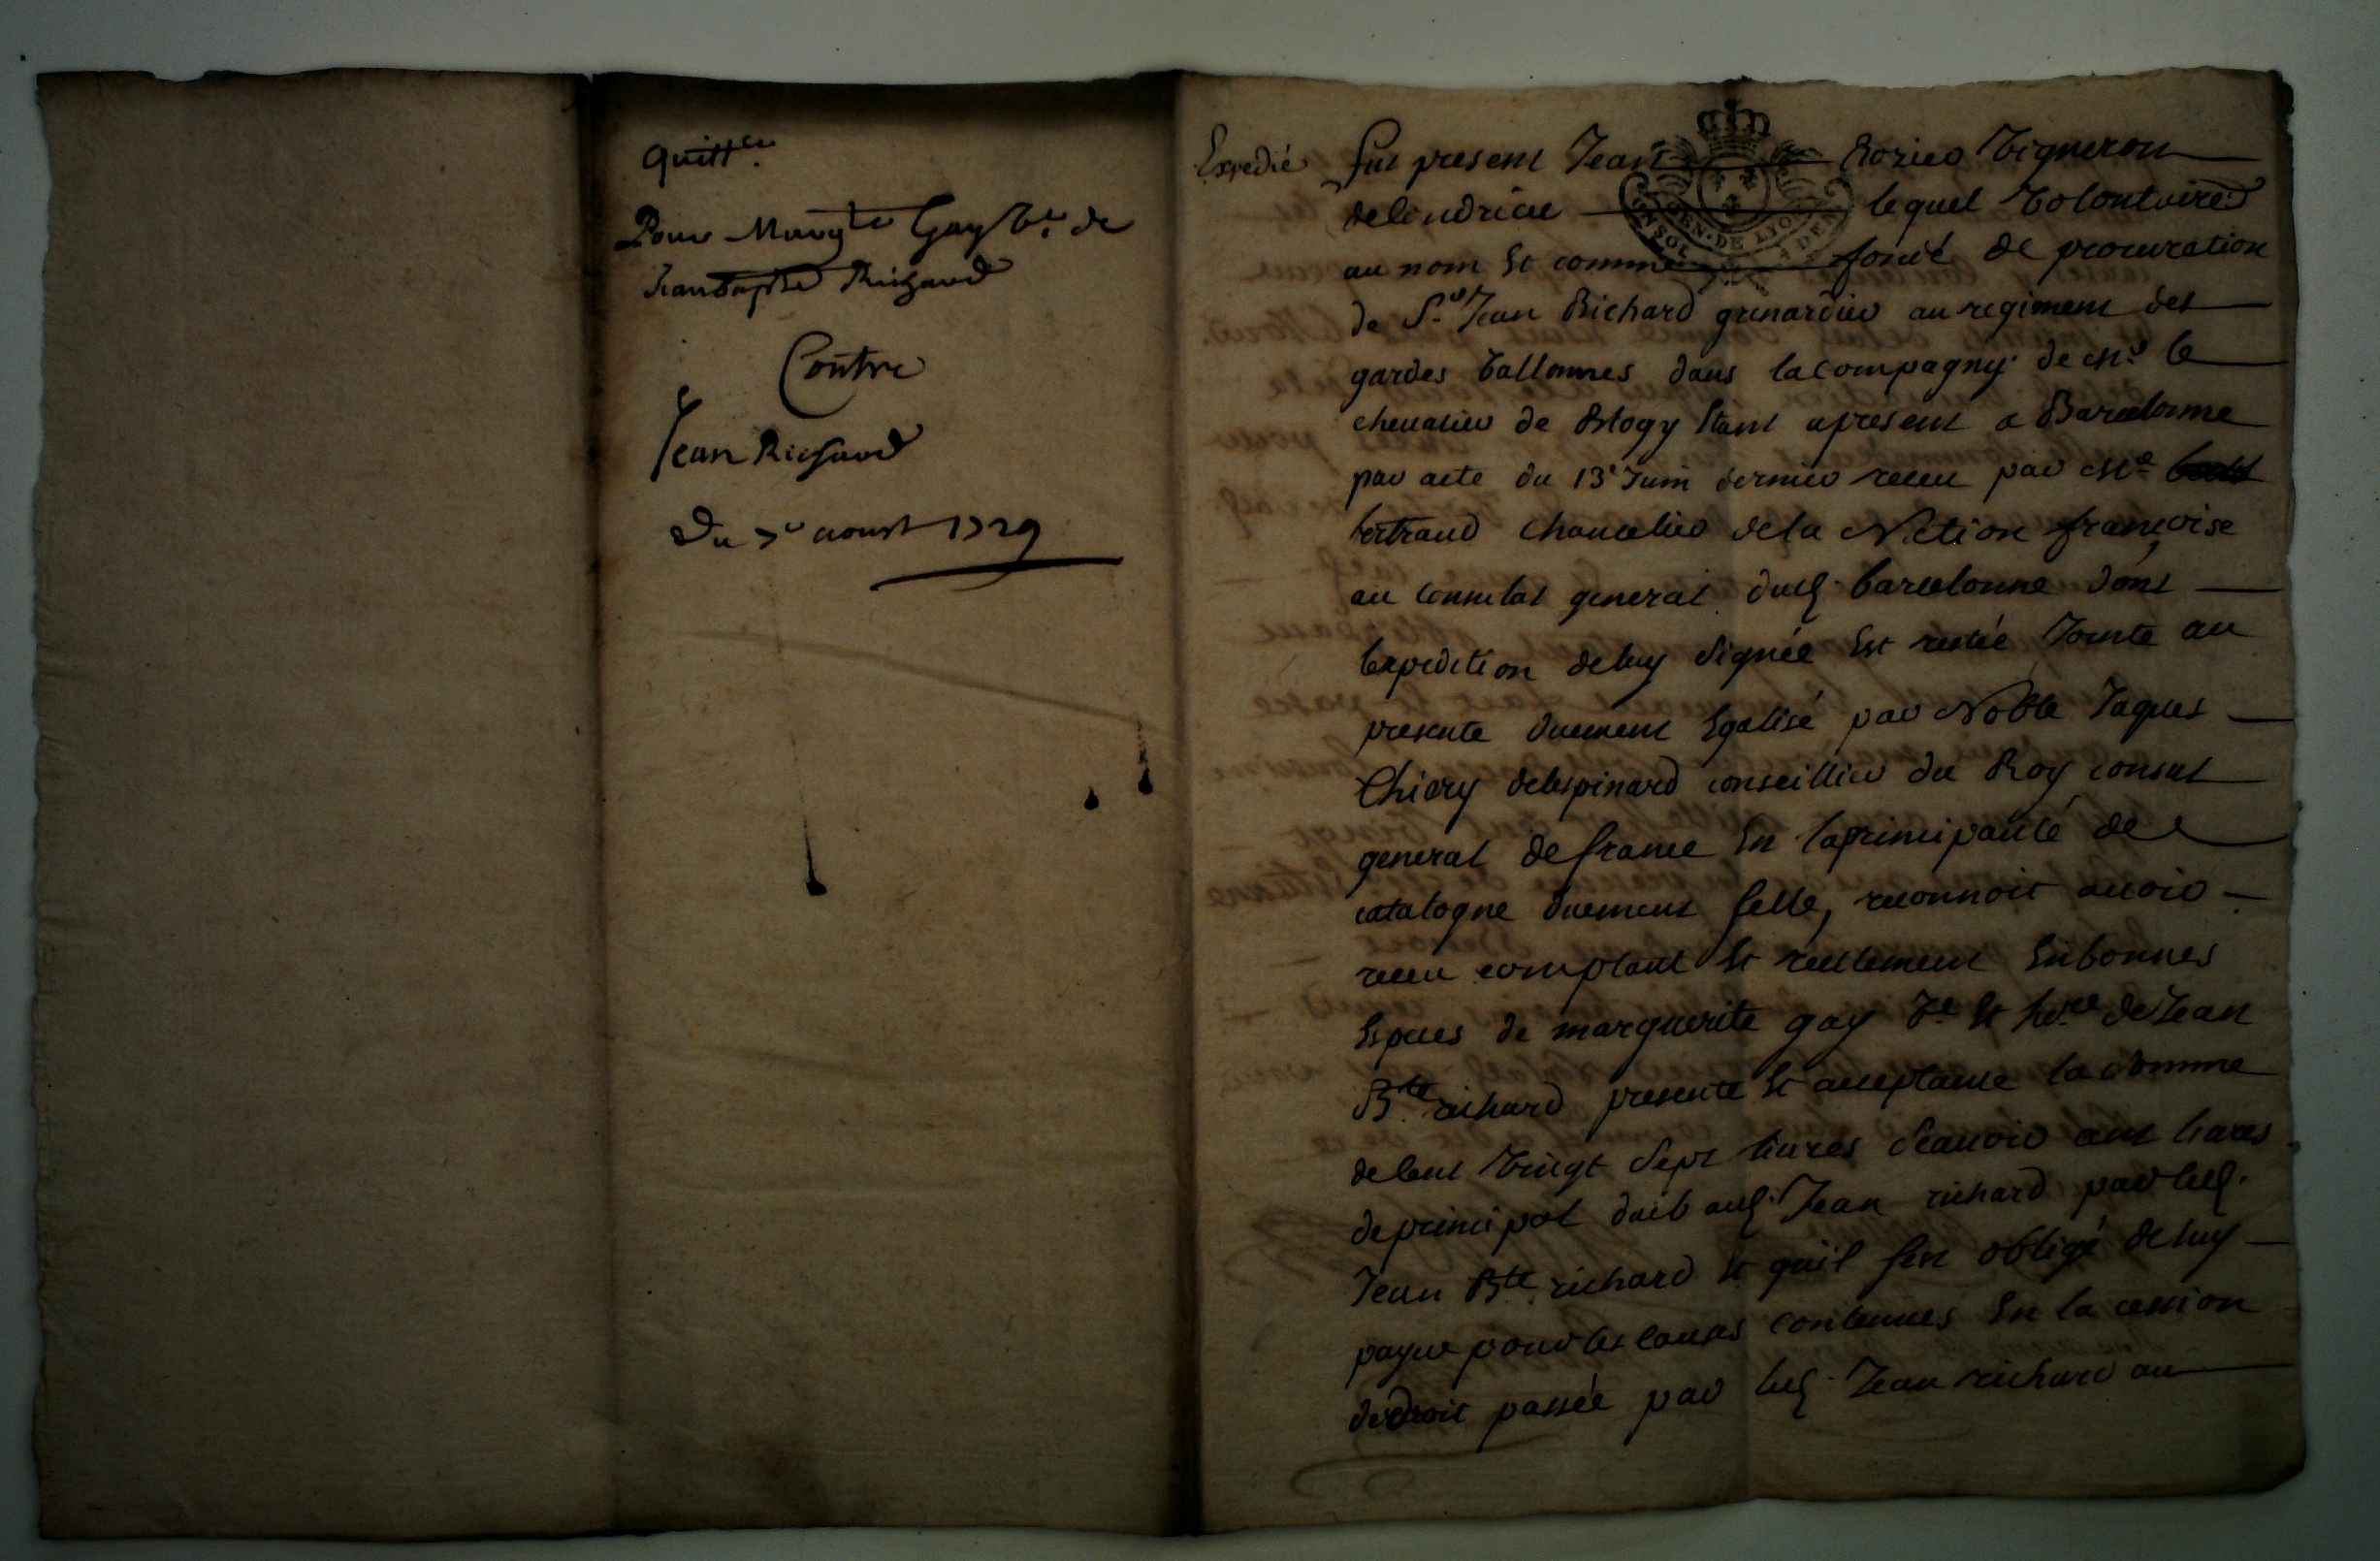 Quitt.ce
Pour Marg.te Gay V.e de
Jean baptste Richard
Contre
Jean Richard
Du 7e aoust 1729
Expedié
fut present Jean Rozier Vigneron
lequel Volontaire
au nom Et comme fondé de procuration
de Sr Jean Richard grenardier au regiment des
gardes Vallonnes dans la compagny de Mr le
chevalier de Estant apresent a Barcelonne
par acte du 13e Juin dernier receu par Me
bertrand chancelier de la Nation françoise
au consulat general dud. barcelonne dont
lexpedition de luy Signée Est restée Jointe au
presente duement Egalisé par Noble Jaques
Thiery delespinard conseillier du Roy consul
general de france En la principauté de
catalogne duement sellé, reconnoit avoir
receu comptant Et reellement En bonnes
Especes de marguerite gay Ve Et here de Jean
Bte richard presente Et acceptante la Somme
de Cent Vingt Sept livres Scavoir cent livres
de principal aud. Jean richard par led.
Jean Bte richard Et qu'il s'est obligé de luy
payer pour les causes contenues En la cession
de droit passée par led. Jean richard au
CONSOL GEN. DE LYON